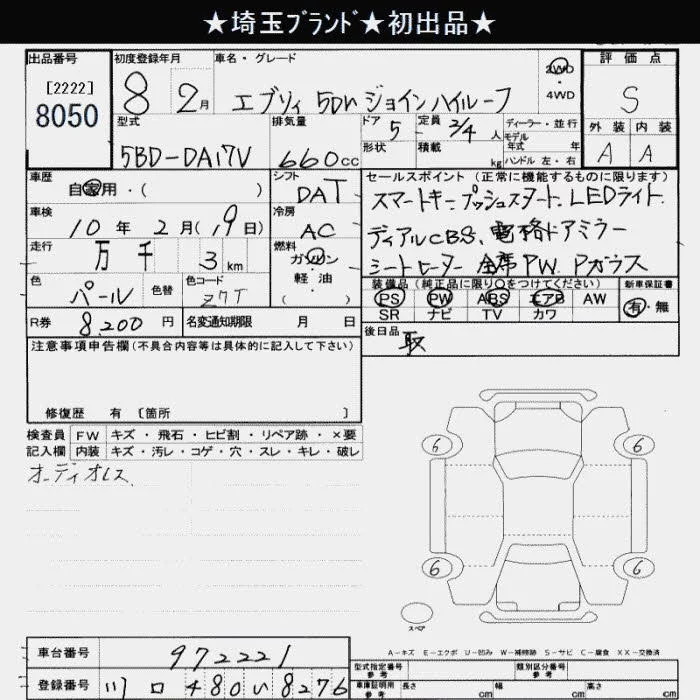 ★埼玉ﾌﾞﾗﾝﾄﾞ★初出品★
出品番号 初度登録年月 車名・グレード 評価点
[2222]
8050
8 2月 エブリィ 5Dr ジョインハイルーフ
2WD
4WD
S
外装 内装
A A
型式 排気量 ドア 定員 ディーラー・並行
5BD-DA17V 660cc 5 2/4人 モデル年式 年
形状 積載 kg ハンドル 左・右
車歴 シフト
自家用・( ) DAT
セールスポイント (正常に機能するものに限ります)
スマートキー プッシュスタート LEDライト
ディアルCBS、電格ドアミラー
シートヒーター 全席PW Pガラス
車検 冷房
10年 2月( 9日) AC
走行 燃料
万 千 3km ガソリン・軽油
( )
色 色替 色コード
パール Z7T
装備品 (純正品に限り○をつけてください) 新車保証書
PS PW ABS エアB AW 有・無
SR ナビ TV カワ
R券 8,200円 名変通知期限 月 日
後日品 取
注意事項申告欄 (不具合内容等は具体的に記入して下さい)
修復歴 有 〔箇所 〕
検査員記入欄 FW キズ・飛石・ヒビ割・リペア跡・×要
内装 キズ・汚レ・コゲ・穴・スレ・キレ・破レ
オーディオレス
6 6
6 6
スペア
A－キズ E－エクボ U－凹み W－補修跡 S－サビ C－腐食 XX－交換済
車台番号 972221
登録番号 川口 480 い 8276
型式指定番号 参考 類別区分番号 参考
車庫証明用 参考 長さ cm 幅 cm 高さ cm